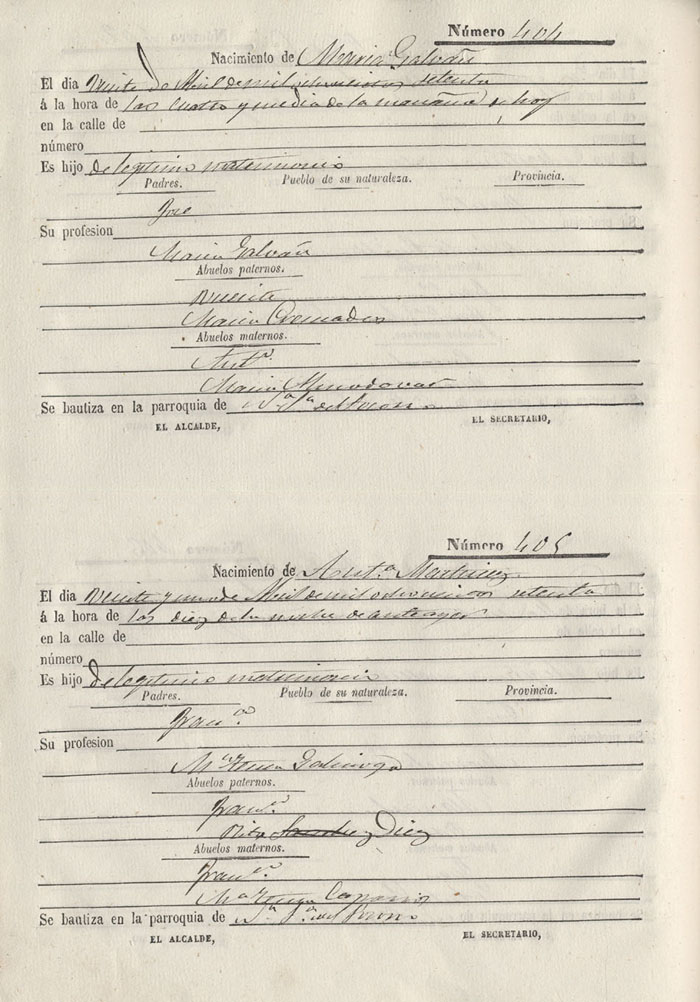 Número 404
Nacimiento de Maria Galvañ
El dia Veinte de Abril de mil ochocientos setenta
á la hora de las cuatro y media de la mañana de hoy
en la calle de
número
Es hijo de legitimo matrimonio
Padres. Pueblo de su naturaleza. Provincia.
José
Su profesion
Maria Galvañ
Abuelos paternos.
Vicente
Maria Cremades
Abuelos maternos.
Antº
Maria
Se bautiza en la parroquia de
EL ALCALDE, EL SECRETARIO,
Número 405
Nacimiento de Antª Martinez
El dia Veinte y uno de Abril de mil ochocientos setenta
á la hora de las diez de la noche de anteayer
en la calle de
número
Es hijo de legitimo matrimonio
Padres. Pueblo de su naturaleza. Provincia.
Franco
Su profesion
Mª Teresa
Abuelos paternos.
Franco
Rita Sanchez Diez
Abuelos maternos.
Franco
Mª Teresa
Se bautiza en la parroquia de
EL ALCALDE, EL SECRETARIO,